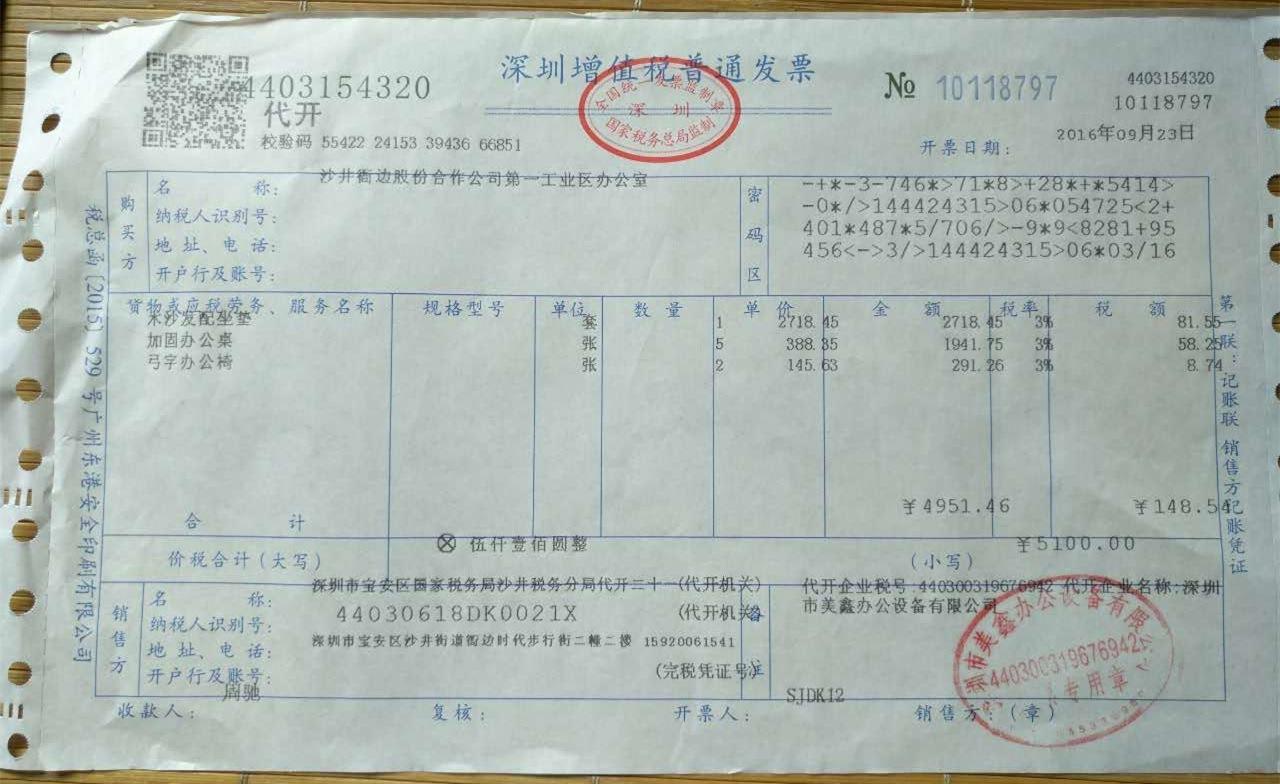 4403154320
代开
校验码 55422 24153 39436 66851
深圳增值税普通发票
全国统一发票监制章
深圳
国家税务总局监制
№ 10118797
4403154320
10118797
开票日期: 2016年09月23日
购买方
名称: 沙井衙边股份合作公司第一工业区办公室
纳税人识别号:
地址、电话:
开户行及账号:
密码区
-+*-3-746*>71*8>+28*+*5414>
-0*/>144424315>06*054725<2+
401*487*5/706/>-9*9<8281+95
456<->3/>144424315>06*03/16
货物或应税劳务、服务名称 规格型号 单位 数量 单价 金额 税率 税额
木沙发配坐垫 套 1 2718.45 2718.45 3% 81.55
加固办公桌 张 5 388.35 1941.75 3% 58.25
弓字办公椅 张 2 145.63 291.26 3% 8.74
合计 ¥4951.46 ¥148.54
价税合计(大写) ⊗ 伍仟壹佰圆整 (小写) ¥5100.00
销售方
名称: 深圳市宝安区国家税务局沙井税务分局代开二十一(代开机关)
纳税人识别号: 44030618DK0021X (代开机关)
地址、电话: 深圳市宝安区沙井街道衙边时代步行街二幢二楼 15920061541
开户行及账号: (完税凭证号)
备注
代开企业税号:440300319676942 代开企业名称:深圳
市美鑫办公设备有限公司
SJDK12
收款人: 周驰 复核: 开票人: 销售方:(章)
深圳市美鑫办公设备有限公司
440300319676942
专用章
税总函〔2015〕529号广州东港安全印刷有限公司
第一联:记账联 销售方记账凭证